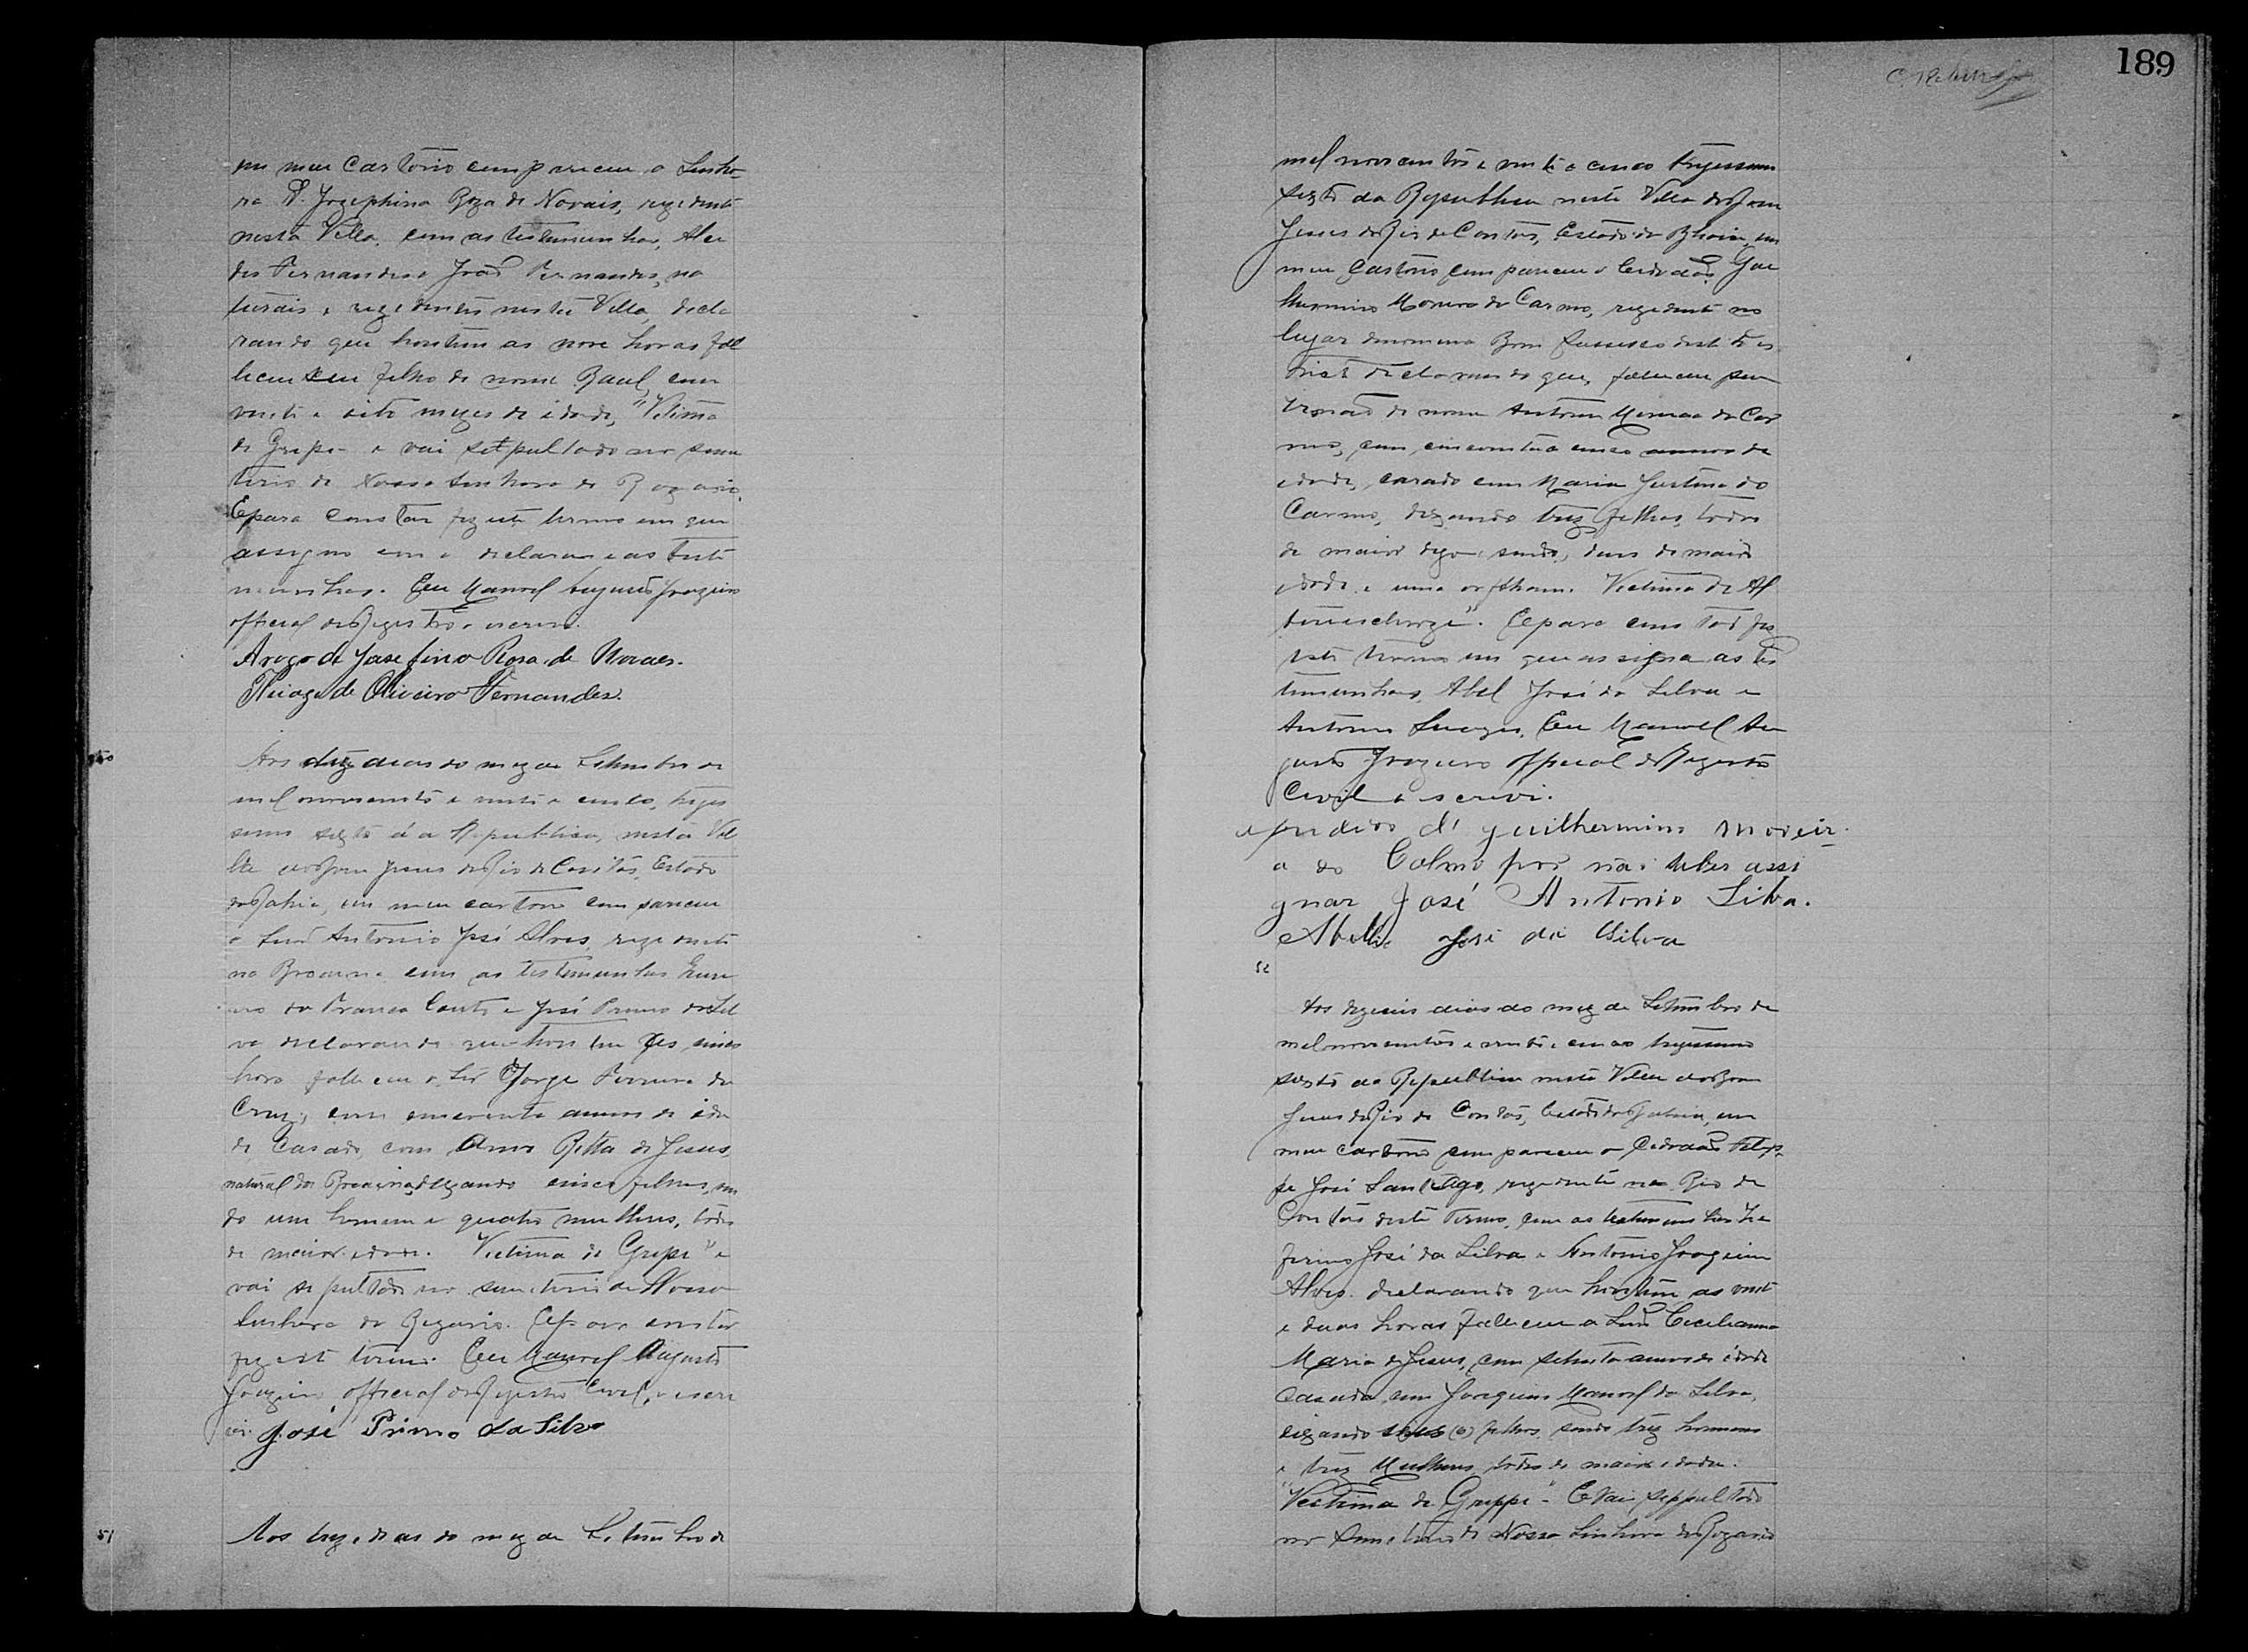 em meu Cartorio compareceu a Senho-
ra D. Jozephina Roza de Novais, rezedente
nesta Villa, com as testemunhas, Alci
des Fernandes e João Fernandes, na
turais e rezedentes nesta Villa, decla
rando que hontem as nove horas fal
leceu seu filho de nome Raul, com
vinte e oito mezes de idade, "Vitima
de Gripe" e vai setpultado no seme
terio de Nossa Senhora do Rozario.
E para constar fiz este termo em que
assigno com a declarante e as teste
munhas. Eu Manoel Augusto Joazeiro
official do Registro o escrevi.
A rogo de Josefina Rosa de Novaes.
Thiago de Oliveira Fernandes.
Aos dez dias do mez de Setembro de
mil novecentos e vinte e cinco, triges
simo sexto da Republica, nesta Vil
la do Bom Jesus do Rio de Contas, Estado
da Bahia, em meu cartorio compareceu
o Senr Antonio José Alves, rezedente
na com as testemunhas
da Franca Couto e José Primo da Sil
va declarando que hontem
hora falleceu o Snr Jorge Ferreira da
Cruz, com annos de ida
de Casado com Anna Ritta de Jesus,
natural da deixando cinco filhos, sen
do um homem e quatro mulheres, todos
de maior idade. Victima de Gripe" e
vai sepultado no semeterio de Nossa
Senhora do Rozario. E para constar
fiz este termo. Eu Manoel Augusto
Joazeiro official do Registro Civil, o escre
vi. José Primo da Silva
51
Aos treze dias do mez de Setembro de
189
mil novecentos e vinte e cinco trigessimo
sexto da Republica nesta Villa do Bom
Jesus do Rio de Contas, Estado da Bhaia, em
meu Cartorio compareceu o Cidadão Gui
lhermino Moreira do Carmo, rezedente no
lugar denomina Bom Sussesso deste
declarando que, falleceu seu
Irmão de nome Antonio Moreira do Car
mo, com cincoenta e cinco annos de
idade, casado com Maria Justina do
Carmo, deixando trez filhos, todos
de maior digo, sendo, dous de maior
idade e uma orftham. Victima de
E para constar fiz
este termo em que assigna as tes
timunhas, Abel José da Silva e
Antonio Eu Manoel Au
gusto Joazeiro official do Registro
Civil o escrevi.
a pudido di guilhermino moreir-
a do Calmo por não saber assi
gnar José Antonio Silva.
José da Silva
52
Aos dezeseis dias do mez de Setembro de
mil novecentos e vinte e cinco trigessimo
sexto da Republica nesta Villa do Bom
Jesus do Rio de Contas, Estado da Bahia, em
meu cartorio compareceu o Cidadão Felip
pe José Santiago, rezedente no Rio de
Contas deste Termo, com as testemunhas Ze
ferino José da Silva e Antonio Joaquim
Alves. declarando que hontem as vinte
e duas horas falleceu a Senra Cecilianna
Maria de Jesus, com setenta annos de idade
Casada com Joaquim Manoel da Silva,
deixando seis (6) filhos, sendo trez homens
e trez Mulheres, todos de maior idade.
"Vectima de Grippe" E vai seppultado
no Semeterio de Nossa Senhora do Rozario